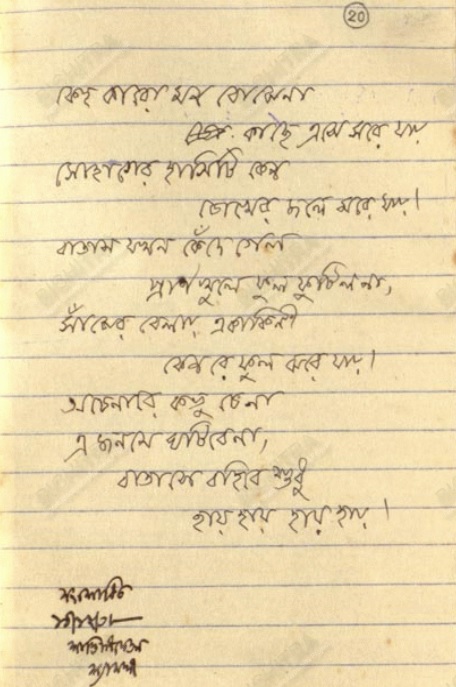 20
কেহ কারো মন বোঝেনা
কাছে এসে সরে যায়
সোহাগের হাসিটি কেন
চোখের জলে মরে যায়।
বাতাস যখন কেঁদে গেল
প্রাণ খুলে ফুল ফুটিল না,
সাঁঝের বেলায় একাকিনী
কেন রে ফুল ঝরে যায়।
অচেনারে কভু চেনা
এ জনমে ঘটিবেনা,
বাতাসে বহিবে শুধু
হায় হায় হায় হায়।